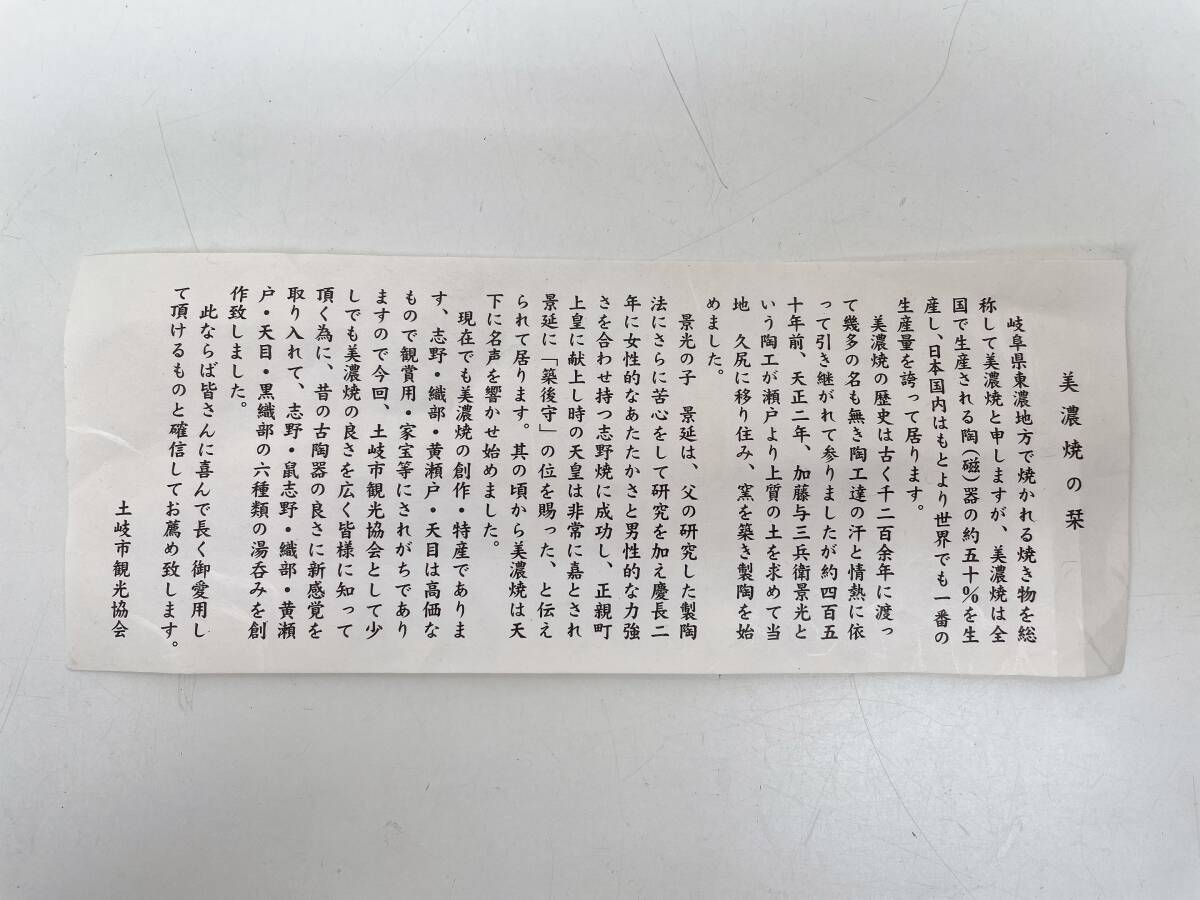 美濃焼の栞
岐阜県東濃地方で焼かれる焼き物を総
称して美濃焼と申しますが、美濃焼は全
国で生産される陶(磁)器の約五十%を生
産し、日本国内はもとより世界でも一番の
生産量を誇って居ります。
美濃焼の歴史は古く千二百余年に渡っ
て幾多の名も無き陶工達の汗と情熱に依
って引き継がれて参りましたが約四百五
十年前、天正二年、加藤与三兵衛景光と
いう陶工が瀬戸より上質の土を求めて当
地 久尻に移り住み、窯を築き製陶を始
めました。
景光の子 景延は、父の研究した製陶
法にさらに苦心をして研究を加え慶長二
年に女性的なあたたかさと男性的な力強
さを合わせ持つ志野焼に成功し、正親町
上皇に献上し時の天皇は非常に嘉とされ
景延に「築後守」の位を賜った、と伝え
られて居ります。其の頃から美濃焼は天
下に名声を響かせ始めました。
現在でも美濃焼の創作・特産でありま
す、志野・織部・黄瀬戸・天目は高価な
もので観賞用・家宝等にされがちであり
ますので今回、土岐市観光協会として少
しでも美濃焼の良さを広く皆様に知って
頂く為に、昔の古陶器の良さに新感覚を
取り入れて、志野・鼠志野・織部・黄瀬
戸・天目・黒織部の六種類の湯呑みを創
作致しました。
此ならば皆さんに喜んで長く御愛用し
て頂けるものと確信してお薦め致します。
土岐市観光協会